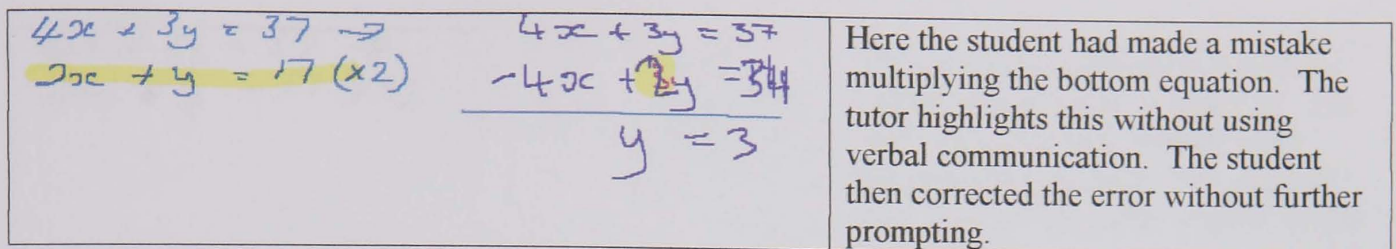 4x + 3y = 37 →
2x + y = 17 (x2)
4x + 3y = 37
-4x + 2y = 34
y = 3
Here the student had made a mistake
multiplying the bottom equation. The
tutor highlights this without using
verbal communication. The student
then corrected the error without further
prompting.